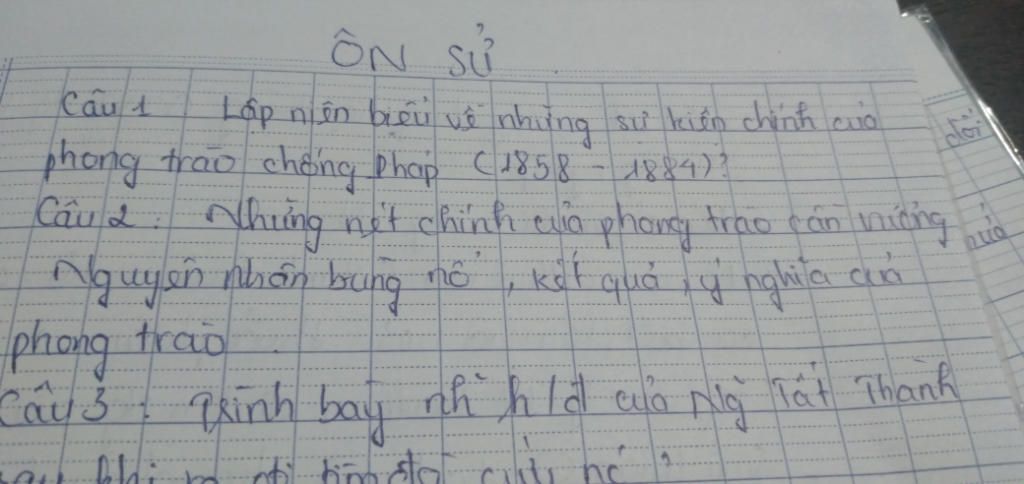 ÔN SỬ
Câu 1 Lập niên biểu về những sự kiện chính của
phong trào chống Pháp (1858 - 1884)?
Câu 2: Những nét chính của phong trào cần vương
Nguyên nhân bùng nổ, kết quả, ý nghĩa của
phong trào
Câu 3: Trình bày nh~ h/đ của Ng~ Tất Thành
sau khi ra đi tìm đg cứu nc?